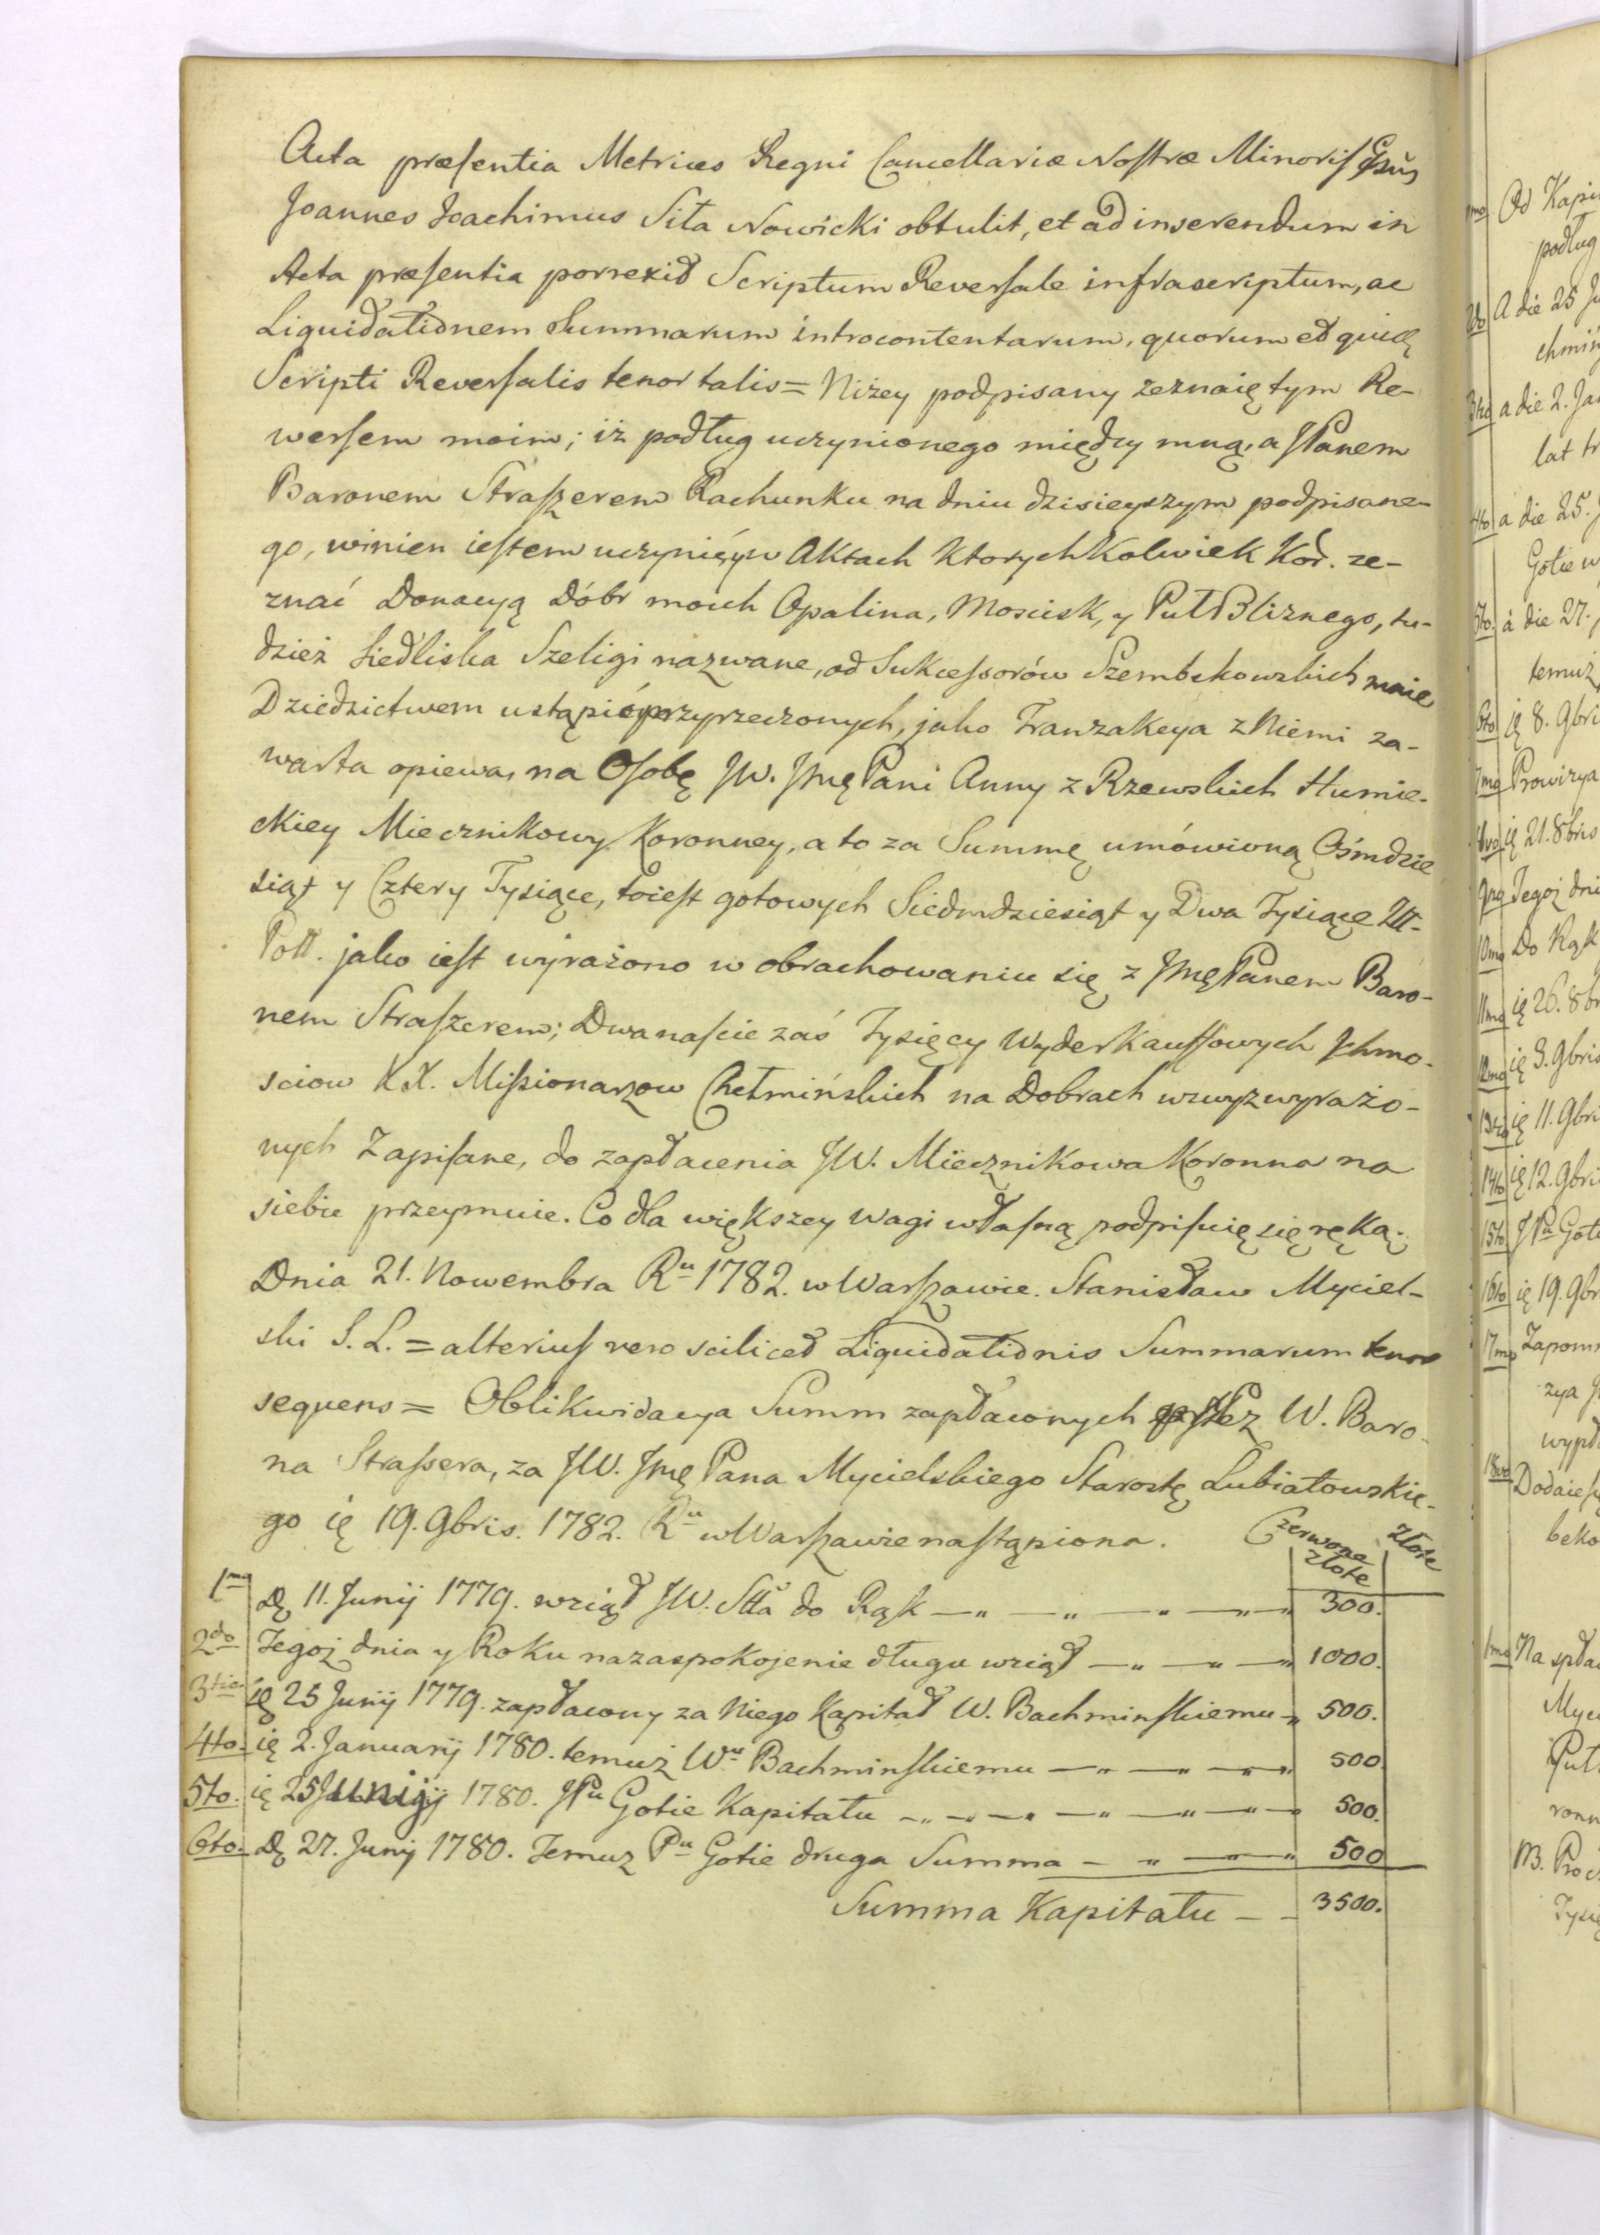 Acta præsentia Metrices Regni Cancellariæ Nostræ Minoris Gsus
Joannes Joachimus Siła Nowicki obtulit, et ad inserendum in
Acta præsentia porrexit Scriptum Reversale infrascriptum, ac
Liquidationem Summarum introcontentarum, quorum et quidē
Scripti Reversalis tenor talis = Niżey podpisany zeznaię tym Re-
wersem moim; iż podług uczynionego między mną, a JPanem
Baronem Straszerem Rachunku na dniu dzisieyszym podpisane-
go, winien iestem uczynić, y w Aktach ktorychkolwiek Kor. ze-
znać Donacyą Dóbr moich Opalina, Moscisk, y Puł Bliznego, tu-
dzież Siedliska Szeligi nazwane, od Sukcessorów Szembekowskich mnie
Dziedzictwem ustąpić przyrzeczonych, jako Tranzakcya z Niemi za-
warta opiewa, na Osobę JW. Jmę Pani Anny z Rzewskich Humie-
ckiey Miecznikowy Koronney, a to za Summę umówioną Ośmdzie
siąt y Cztery Tysiące, toiest gotowych Siedmdziesiąt y Dwa Tysiące Złł.
Poll. jako iest wyrażono w obrachowaniu się z Jmę Panem Baro-
nem Straszerem; Dwanaście zaś Tysięcy Wyderkauffowych Jchmo-
sciow XX. Missionarzow Chełmińskich na Dobrach wzwyz wyrażo-
nych Zapisane, do zapłacenia JW. Miecznikowa Koronna na
siebie przeymuie. Co dla większey wagi własną podpisuię się ręką.
Dnia 21. Nowembra Ru 1782. w Warszawie. Stanisław Myciel-
ski S. L. = alterius vero scilicet Liquidationis Summarum tenor
sequens = Oblikwidacya Summ zapłaconych przez W. Baro-
na Strassera, za JW. Jmę Pana Mycielskiego Starostę Lubiatowskie-
go ię 19. 9bris. 1782. Ru w Warszawie nastąpiona.
Czerwone Złote
Złote
1mo Dę 11. Junij 1779. wziął JW. Stta do Rąk 300.
2do Tegoż dnia y Roku na zaspokojenie długu wziął 1000.
3tio ię 25 Junij 1779. zapłacony za Niego Kapitał W. Bachminskiemu 500.
4to. ię 2. Januarij 1780. temuż Wu Bachminskiemu 500
5to. ię 25 Junij 1780. JPu Gotie Kapitału 500.
6to. Dę 27. Junij 1780. Temuz Pu Gotie druga Summa 500
Summa Kapitału 3500.